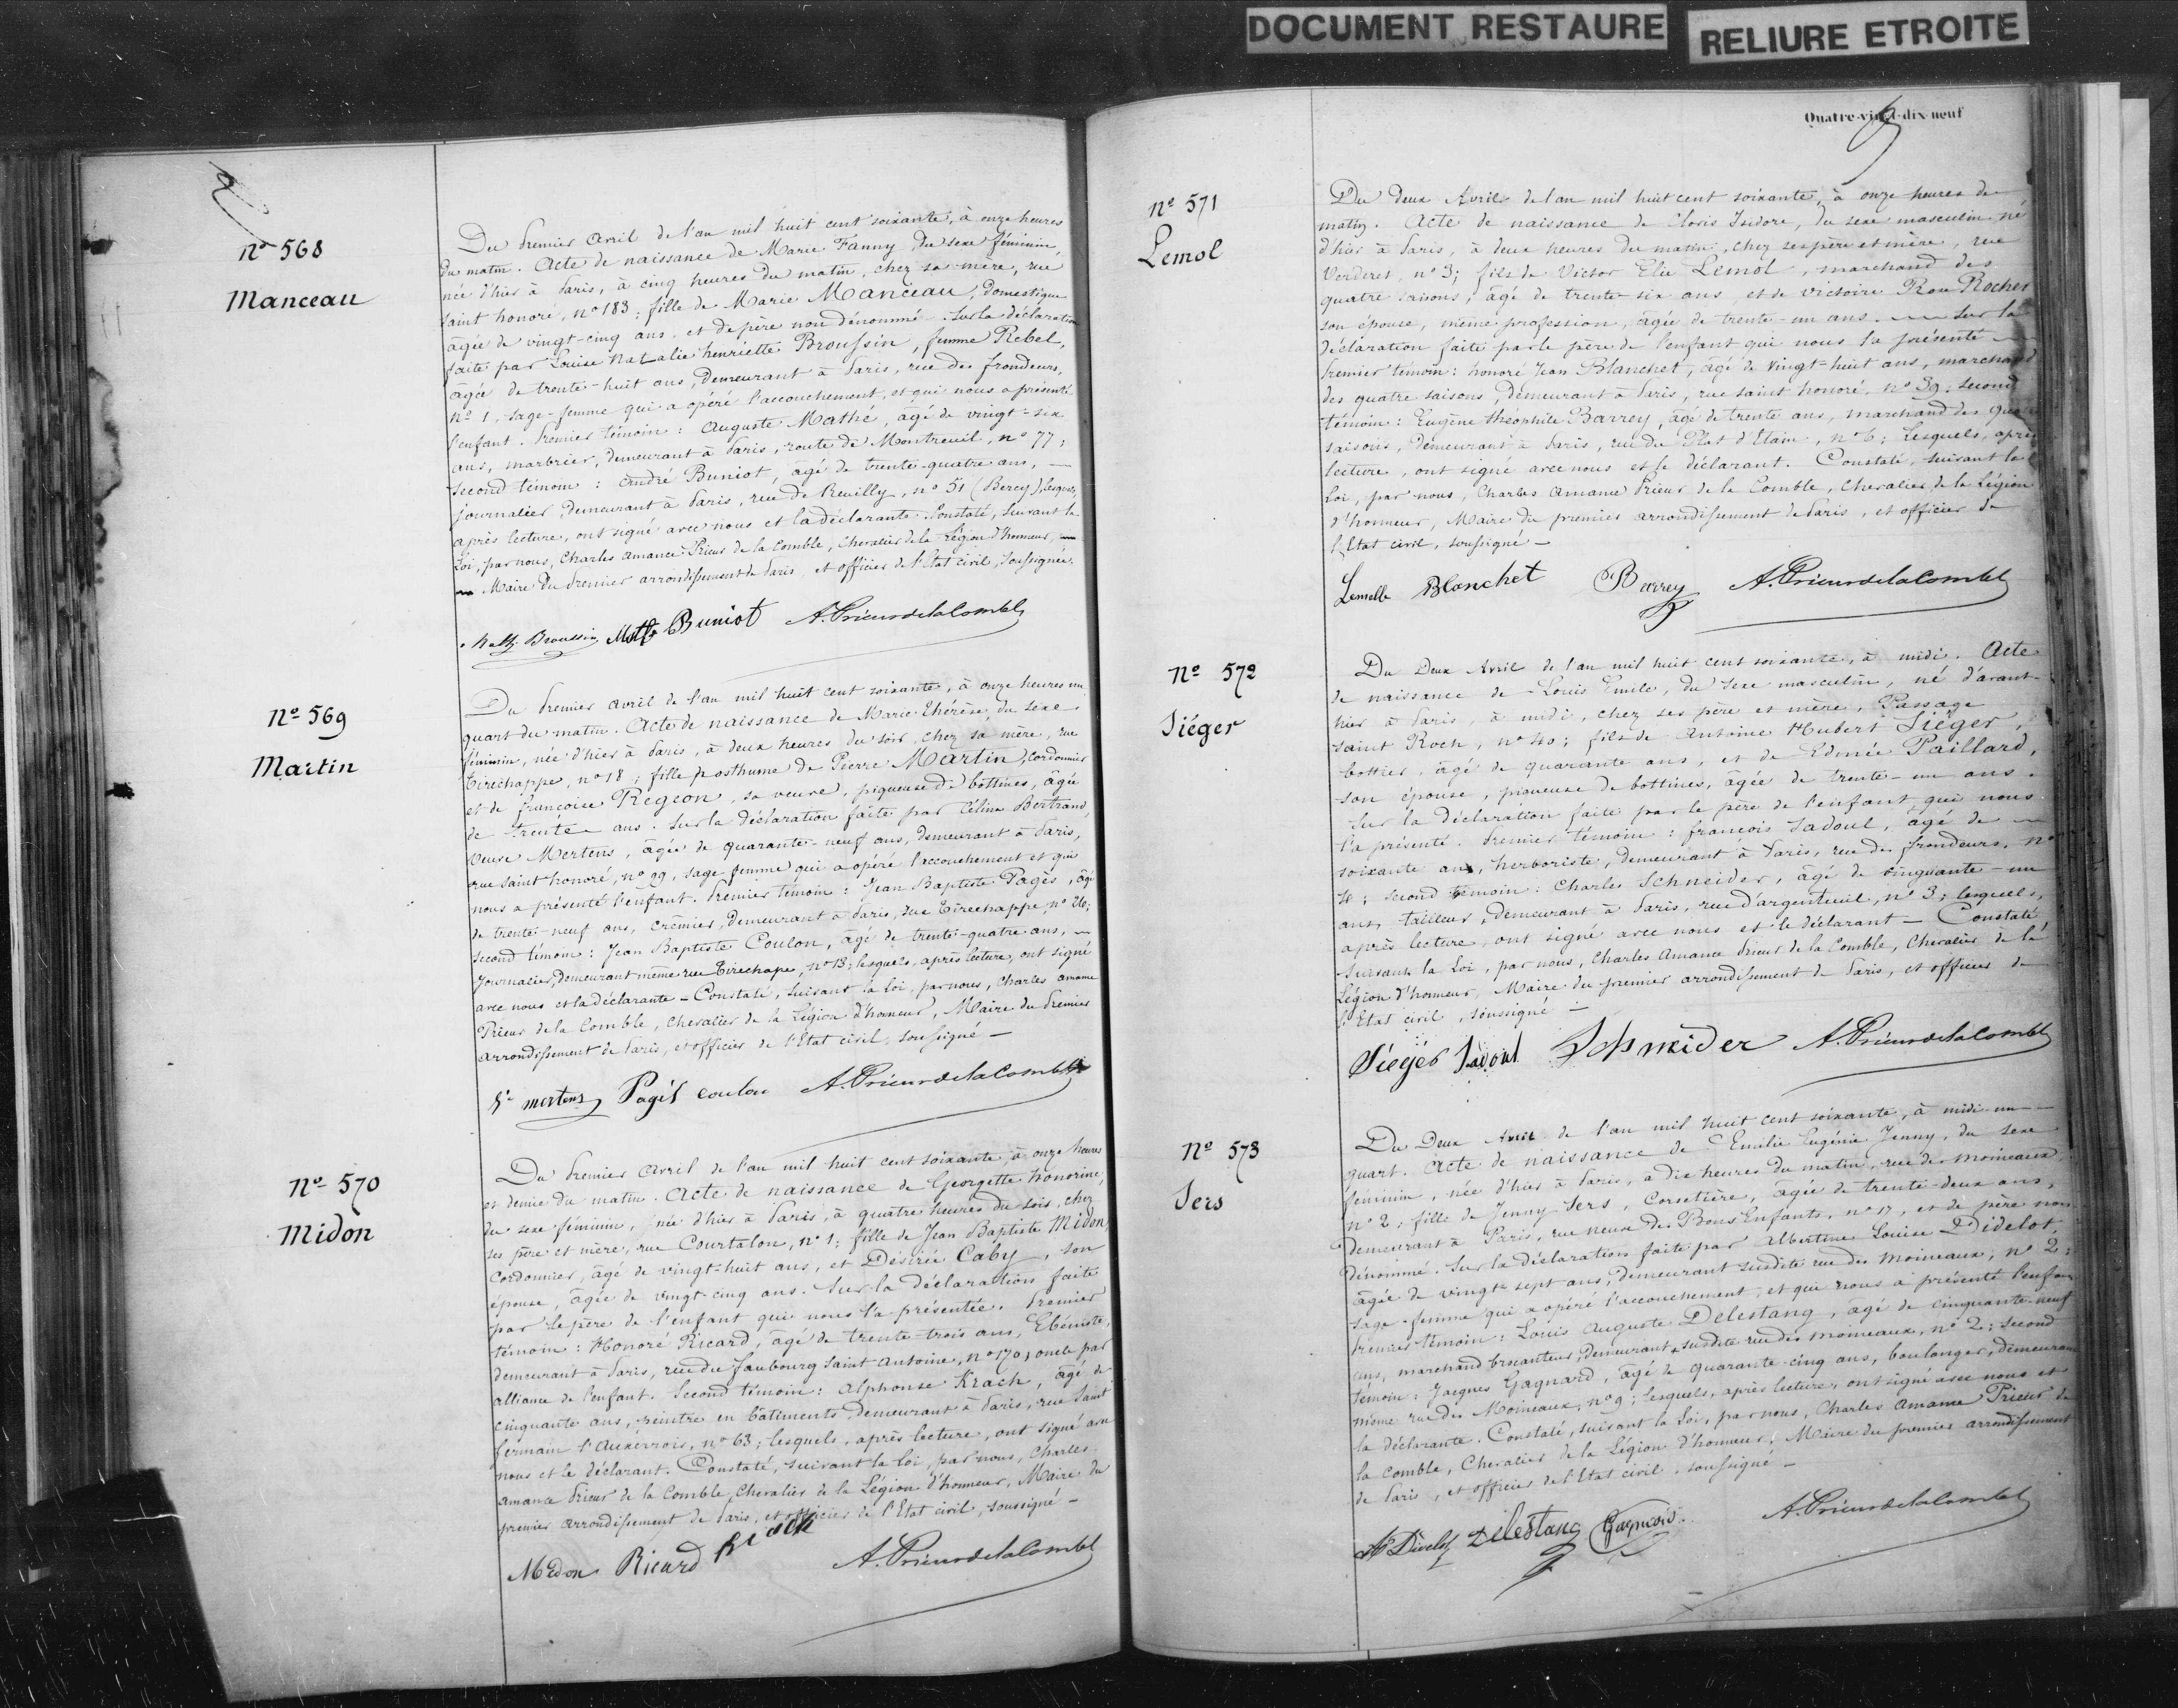 DOCUMENT RESTAURE
RELIURE ETROITE
Nº 568
Manceau
Du Premier Avril de l'an mil huit cent soixante, à onze heures
du matin. Acte de naissance de Marie Fanny, du sexe féminin,
née d'hier à Paris, à cinq heures du matin, chez sa mère, rue
saint honoré, nº 183; fille de Marie Manceau, domestique
âgée de vingt-cinq ans, et de père non dénommé. Sur la déclaration
faite par Louise Natalie henriette Broussin, femme Rebel,
âgée de trente-huit ans, demeurant à Paris, rue des frondeurs,
nº 1, sage-femme qui a opéré l'accouchement, et qui nous a présenté
l'enfant. Premier témoin: Auguste Mathé, âgé de vingt-six
ans, marbrier, demeurant à Paris, route de Montreuil, nº 77;
second témoin: André Buniot, âgé de trente-quatre ans, —
journalier, demeurant à Paris, rue de Reuilly, nº 51 (Bercy), lesquels,
après lecture, ont signé avec nous et la déclarante. Constaté, suivant la
Loi, par nous, Charles Amance Prieur de la Comble, Chevalier de la Légion d'honneur, —
— Maire du Premier arrondissement de Paris, et officier de l'Etat civil, soussigné.
Broussin Buniot A. Prieur de la Comble
Nº 569
Martin
Du Premier avril de l'an mil huit cent soixante, à onze heures un
quart du matin. Acte de naissance de Marie Thérèse, du sexe
féminin, née d'hier à Paris, à deux heures du soir, chez sa mère, rue
Tirechappe, nº 18; fille posthume de Pierre Martin, Cordonnier
et de françoise Regeon, sa veuve, piqueuse de bottines, âgée
de trente ans. Sur la déclaration faite par Céline Bertrand,
Veuve Mertens, âgée de quarante-neuf ans, demeurant à Paris,
rue saint honoré, nº 99, sage femme qui a opéré l'accouchement et qui
nous a présenté l'enfant. Premier témoin: Jean Baptiste Pagès, âgé
de trente-neuf ans, Crêmier, demeurant à Paris, rue Tirechappe, nº 26;
second témoin: Jean Baptiste Coulon, âgé de trente-quatre ans, —
Journalier, demeurant même rue Tirechape, nº 13; lesquels, après lecture, ont signé
avec nous et la déclarante — Constaté, suivant la loi, par nous, Charles amance
Prieur de la Comble, Chevalier de la Légion d'honneur, Maire du Premier
arrondissement de Paris, et officier de l'Etat civil, soussigné —
Ve mertens Pagès coulon A. Prieur de la Comble
Nº 570
Midon
Du Premier Avril de l'an mil huit cent soixante, à onze heures
et demie du matin. Acte de naissance de Georgette honorine,
du sexe féminin, née d'hier à Paris, à quatre heures du soir, chez
ses père et mère, rue Courtalon, nº 1; fille de Jean Baptiste Midon,
Cordonnier, âgé de vingt-huit ans, et Désirée Caby, son
épouse, âgée de vingt-cinq ans. Sur la déclaration faite
par le père de l'enfant qui nous l'a présentée. Premier
témoin: Honoré Ricard, âgé de trente-trois ans, Ebéniste,
demeurant à Paris, rue du faubourg saint Antoine, nº 170, oncle par
alliance de l'enfant. Second témoin: Alphonse Krach, âgé de
cinquante ans, peintre en bâtiments, demeurant à Paris, rue Saint
Germain l'Auxerrois, nº 63; lesquels, après lecture, ont signé avec
nous et le déclarant. Constaté, suivant la loi, par nous, Charles
Amance Prieur de la Comble, Chevalier de la Légion d'honneur, Maire du
premier arrondissement de Paris, et officier de l'Etat civil, soussigné —
Midon Ricard Krach A. Prieur de la Comble
Quatre-vingt-dix-neuf
Nº 571
Lemol
Du deux Avril de l'an mil huit cent soixante, à onze heures du
matin. Acte de naissance de Cloris Isidore, du sexe masculin né
d'hier à Paris, à deux heures du matin, chez ses père et mère, rue
Verderet, nº 3; fils de Victor Elie Lemol, marchand des
quatre saisons, âgé de trente-six ans, et de victoire Rocher
son épouse, même profession, âgée de trente-un ans. — Sur la
déclaration faite par le père de l'enfant qui nous l'a présenté —
Premier témoin: honoré Jean Blanchet, âgé de vingt-huit ans, marchand
des quatre saisons, demeurant à Paris, rue saint honoré, nº 39; second
témoin: Eugène théophile Barrey, âgé de trente ans, marchand des quatre
saisons, demeurant à Paris, rue du Plat d'Etain, nº 6; Lesquels, après
lecture, ont signé avec nous et le déclarant. Constaté, suivant la
Loi, par nous, Charles Amance Prieur de la Comble, Chevalier de la Légion
d'honneur, Maire du premier arrondissement de Paris, et officier de
l'Etat civil, soussigné —
Lemolle Blanchet Barrey A. Prieur de la Comble
Nº 572
Siéger
Du Deux Avril de l'an mil huit cent soixante, à midi. Acte
de naissance de Louis Emile, du sexe masculin, né d'avant-
hier à Paris, à midi, chez ses père et mère, Passage
saint Roch, nº 40; fils de Antoine Hubert Siéger,
bottier, âgé de quarante ans, et de Edmée Paillard,
son épouse, piqueuse de bottines, âgée de trente-un ans.
Sur la déclaration faite par le père de l'enfant qui nous
l'a présenté. Premier témoin: françois Sadoul, âgé de —
soixante ans, herboriste, demeurant à Paris, rue des frondeurs, nº
4; second témoin: Charles Schneider, âgé de cinquante-un
ans, tailleur, demeurant à Paris, rue d'argenteuil, nº 3; lesquels,
après lecture, ont signé avec nous et le déclarant — Constaté,
suivant la Loi, par nous, Charles Amance Prieur de la Comble, Chevalier de la
Légion d'honneur, Maire du premier arrondissement de Paris, et officier de
l'Etat civil, soussigné —
Siéger Sadoul Schneider A. Prieur de la Comble
Nº 573
Sers
Du Deux Avril de l'an mil huit cent soixante, à midi un —
quart. Acte de naissance de Emilie Eugénie Jenny, du sexe
féminin, née d'hier à Paris, à dix heures du matin, rue des moineaux,
nº 2, fille de Jenny Sers, Corsetière, âgée de trente-deux ans,
demeurant à Paris, rue neuve des Bons Enfants, nº 17, et de père non
dénommé. Sur la déclaration faite par Albertine Louise Didelot,
âgée de vingt-sept ans, demeurant susdite rue des moineaux, nº 2;
sage-femme qui a opéré l'accouchement, et qui nous a présenté l'enfant
Premier témoin: Louis Auguste Delestang, âgé de cinquante-neuf
ans, marchand brocanteur, demeurant susdite rue des moineaux, nº 2; second
témoin: Jacques Gagnard, âgé de quarante-cinq ans, boulanger, demeurant
même rue des Moineaux, nº 9; lesquels, après lecture, ont signé avec nous et
la déclarante. Constaté, suivant la Loi, par nous, Charles Amance Prieur de
la Comble, Chevalier de la Légion d'honneur, Maire du premier arrondissement
de Paris, et officier de l'Etat civil, soussigné —
Delestang A. Prieur de la Comble